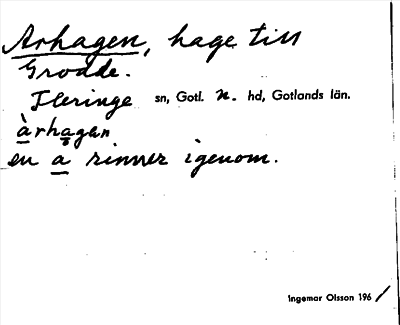 Arhagen, hage till
Grodde.
Fleringe sn, Gotl. n. hd, Gotlands län.
àrhagen
en a rinner igenom.
Ingemar Olsson 1961